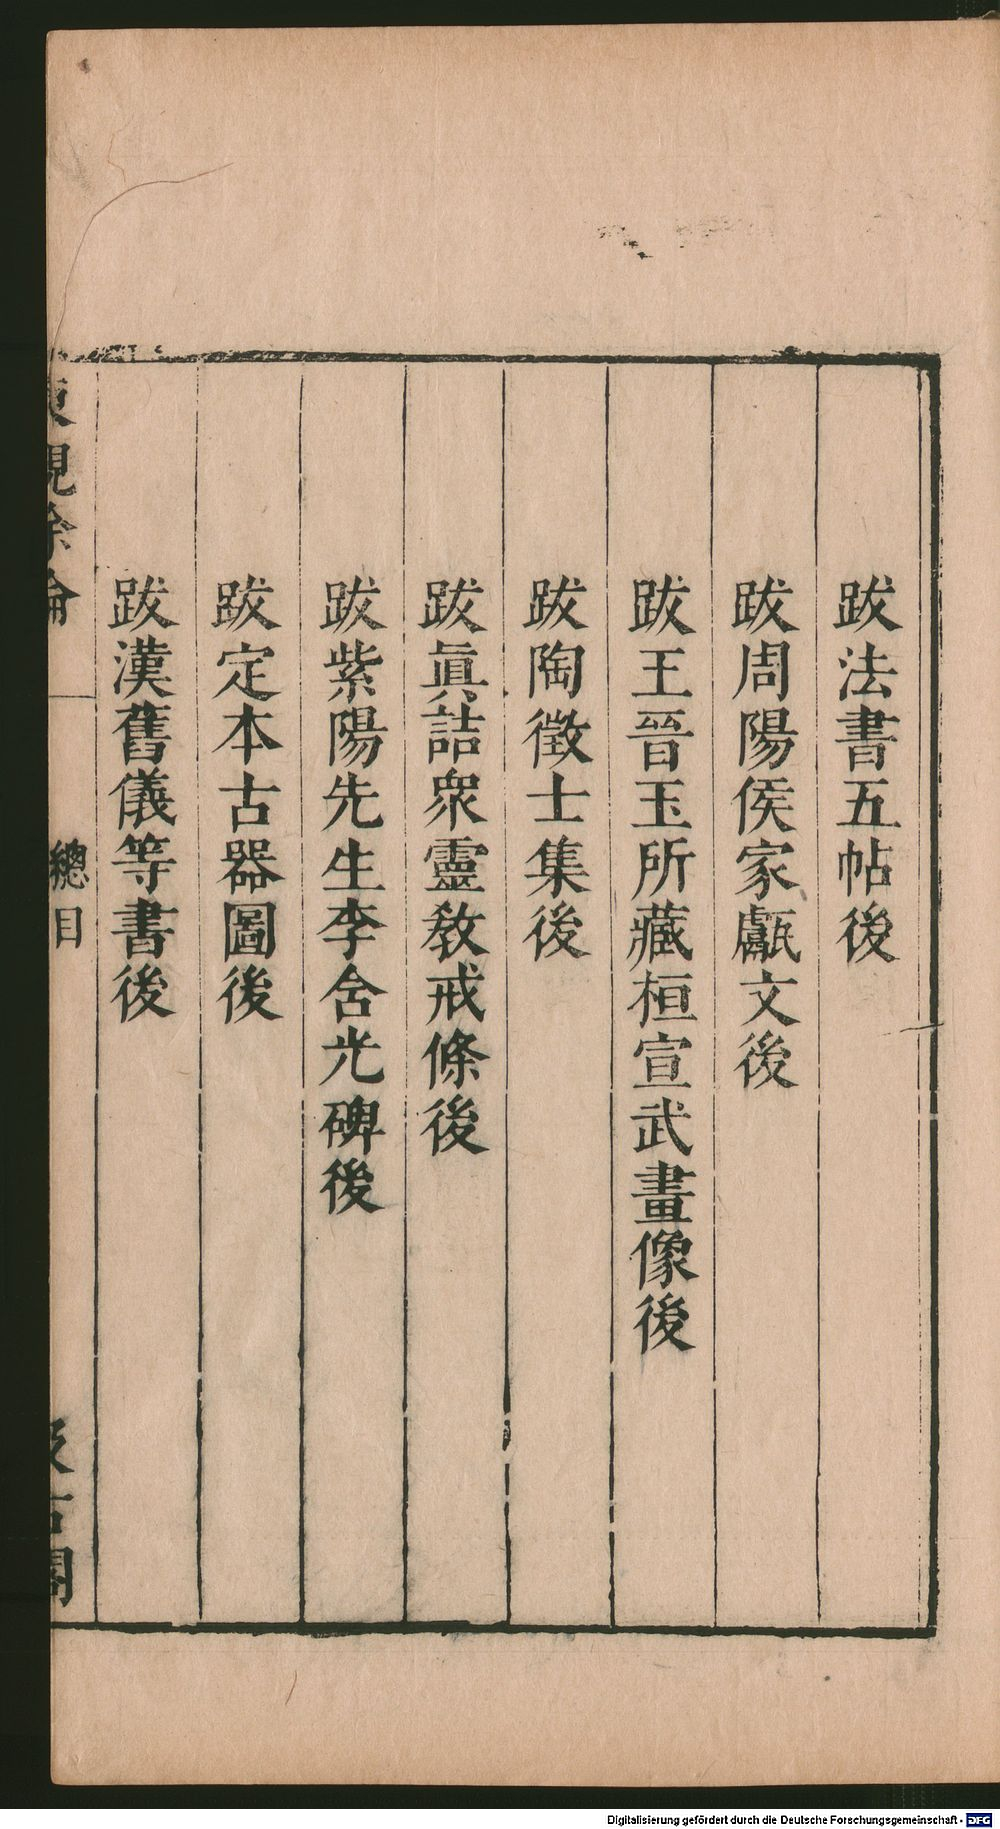 跋法書五帖後
跋周陽侯家甗文後
跋王晉玉所藏桓宣武畫像後
跋陶徵士集後
跋眞誥衆靈敎戒條後
跋紫陽先生李含光碑後
跋定本古器圖後
跋漢舊儀等書後
東觀餘論 總目 汲古閣
Digitalisierung gefördert durch die Deutsche Forschungsgemeinschaft - DFG